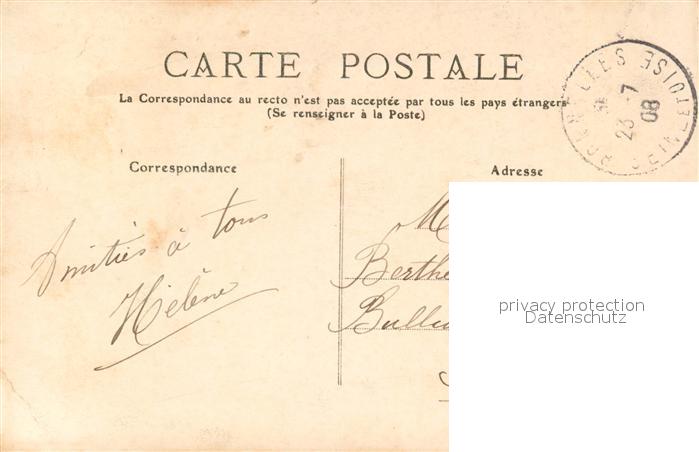 CARTE POSTALE
La Correspondance au recto n'est pas acceptée par tous les pays étrangers
(Se renseigner à la Poste)
Correspondance
Adresse
Amitiés à tous
Hélène
M
Berthe
SEINE ET OISE
23 -7
08
privacy protection
Datenschutz